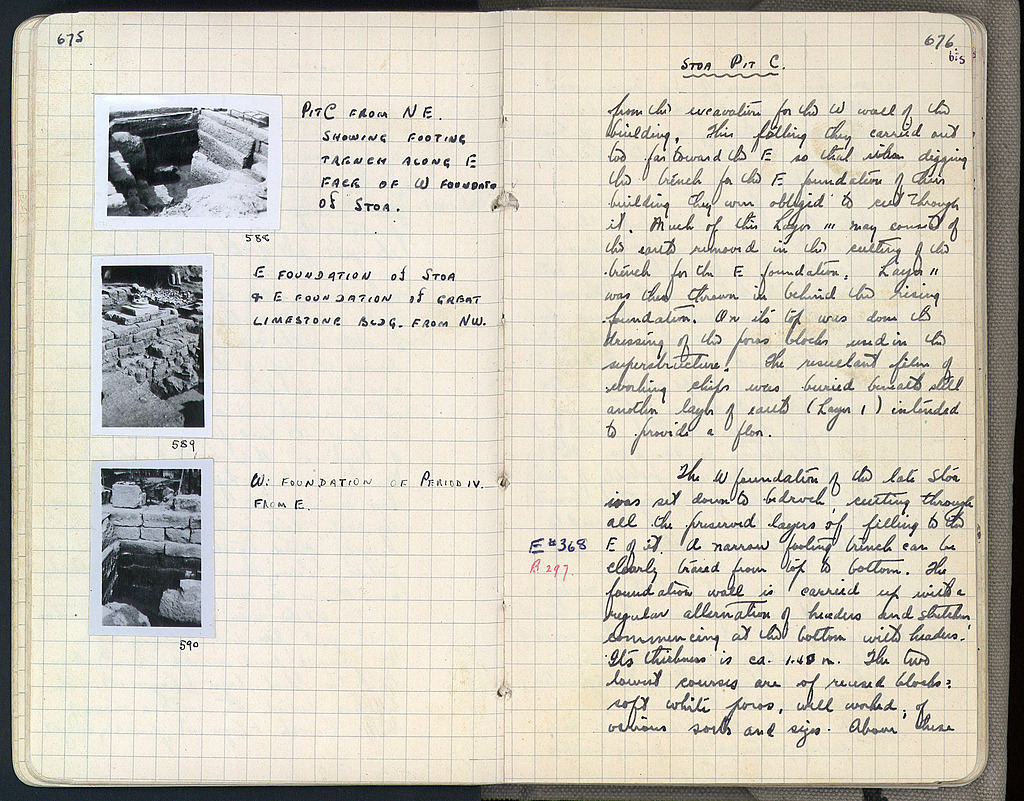 675
PIT C FROM NE.
SHOWING FOOTING
TRENCH ALONG E
FACE OF W FOUNDATO
OF STOA.
588
E FOUNDATION OF STOA
& E FOUNDATION OF GREAT
LIMESTONE BLDG. FROM NW.
589
W: FOUNDATION OF PERIOD IV.
FROM E.
590
676
bis
STOA PIT C.
from the excavation for the W wall of the
building. This filling they carried out
too far toward the E so that when digging
the trench for the E foundation of their
building they were obliged to cut through
it. Much of this Layer III may consist of
the earth removed in the cutting of the
trench for the E foundation. Layer II
was then thrown in behind the rising
foundation. On its top was done the
dressing of the poros blocks used in the
superstructure. The resultant film of
working chips was buried beneath still
another layer of earth (Layer I) intended
to provide a floor.
The W foundation of the late Stoa
was set down to bedrock, cutting through
all the preserved layers of filling to the
E of it. A narrow footing trench can be
clearly traced from top to bottom. The
foundation wall is carried up with a
regular alternation of headers and stretchers,
commencing at the bottom with headers.
Its thickness is ca. 1.40 m. The two
lowest courses are of reused blocks:
soft white poros, well worked, of
various sorts and sizes. Above these
E #368
P. 297.